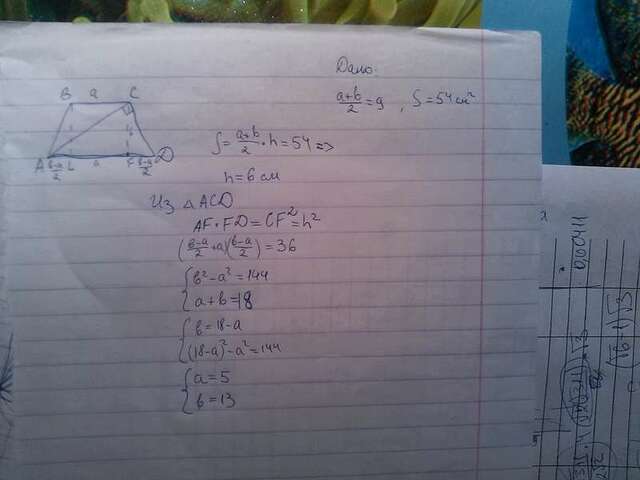 Дано:
(a+b)/2 = 9 , S = 54 см²
B a C
h
A (b-a)/2 L a F (b-a)/2 D
S = (a+b)/2 · h = 54 =>
h = 6 см
Из △ ACD
AF · FD = CF² = h²
((b-a)/2 + a)((b-a)/2) = 36
{ b² - a² = 144
a + b = 18
{ b = 18 - a
(18-a)² - a² = 144
{ a = 5
b = 13
0,00411
(√6-1)√3